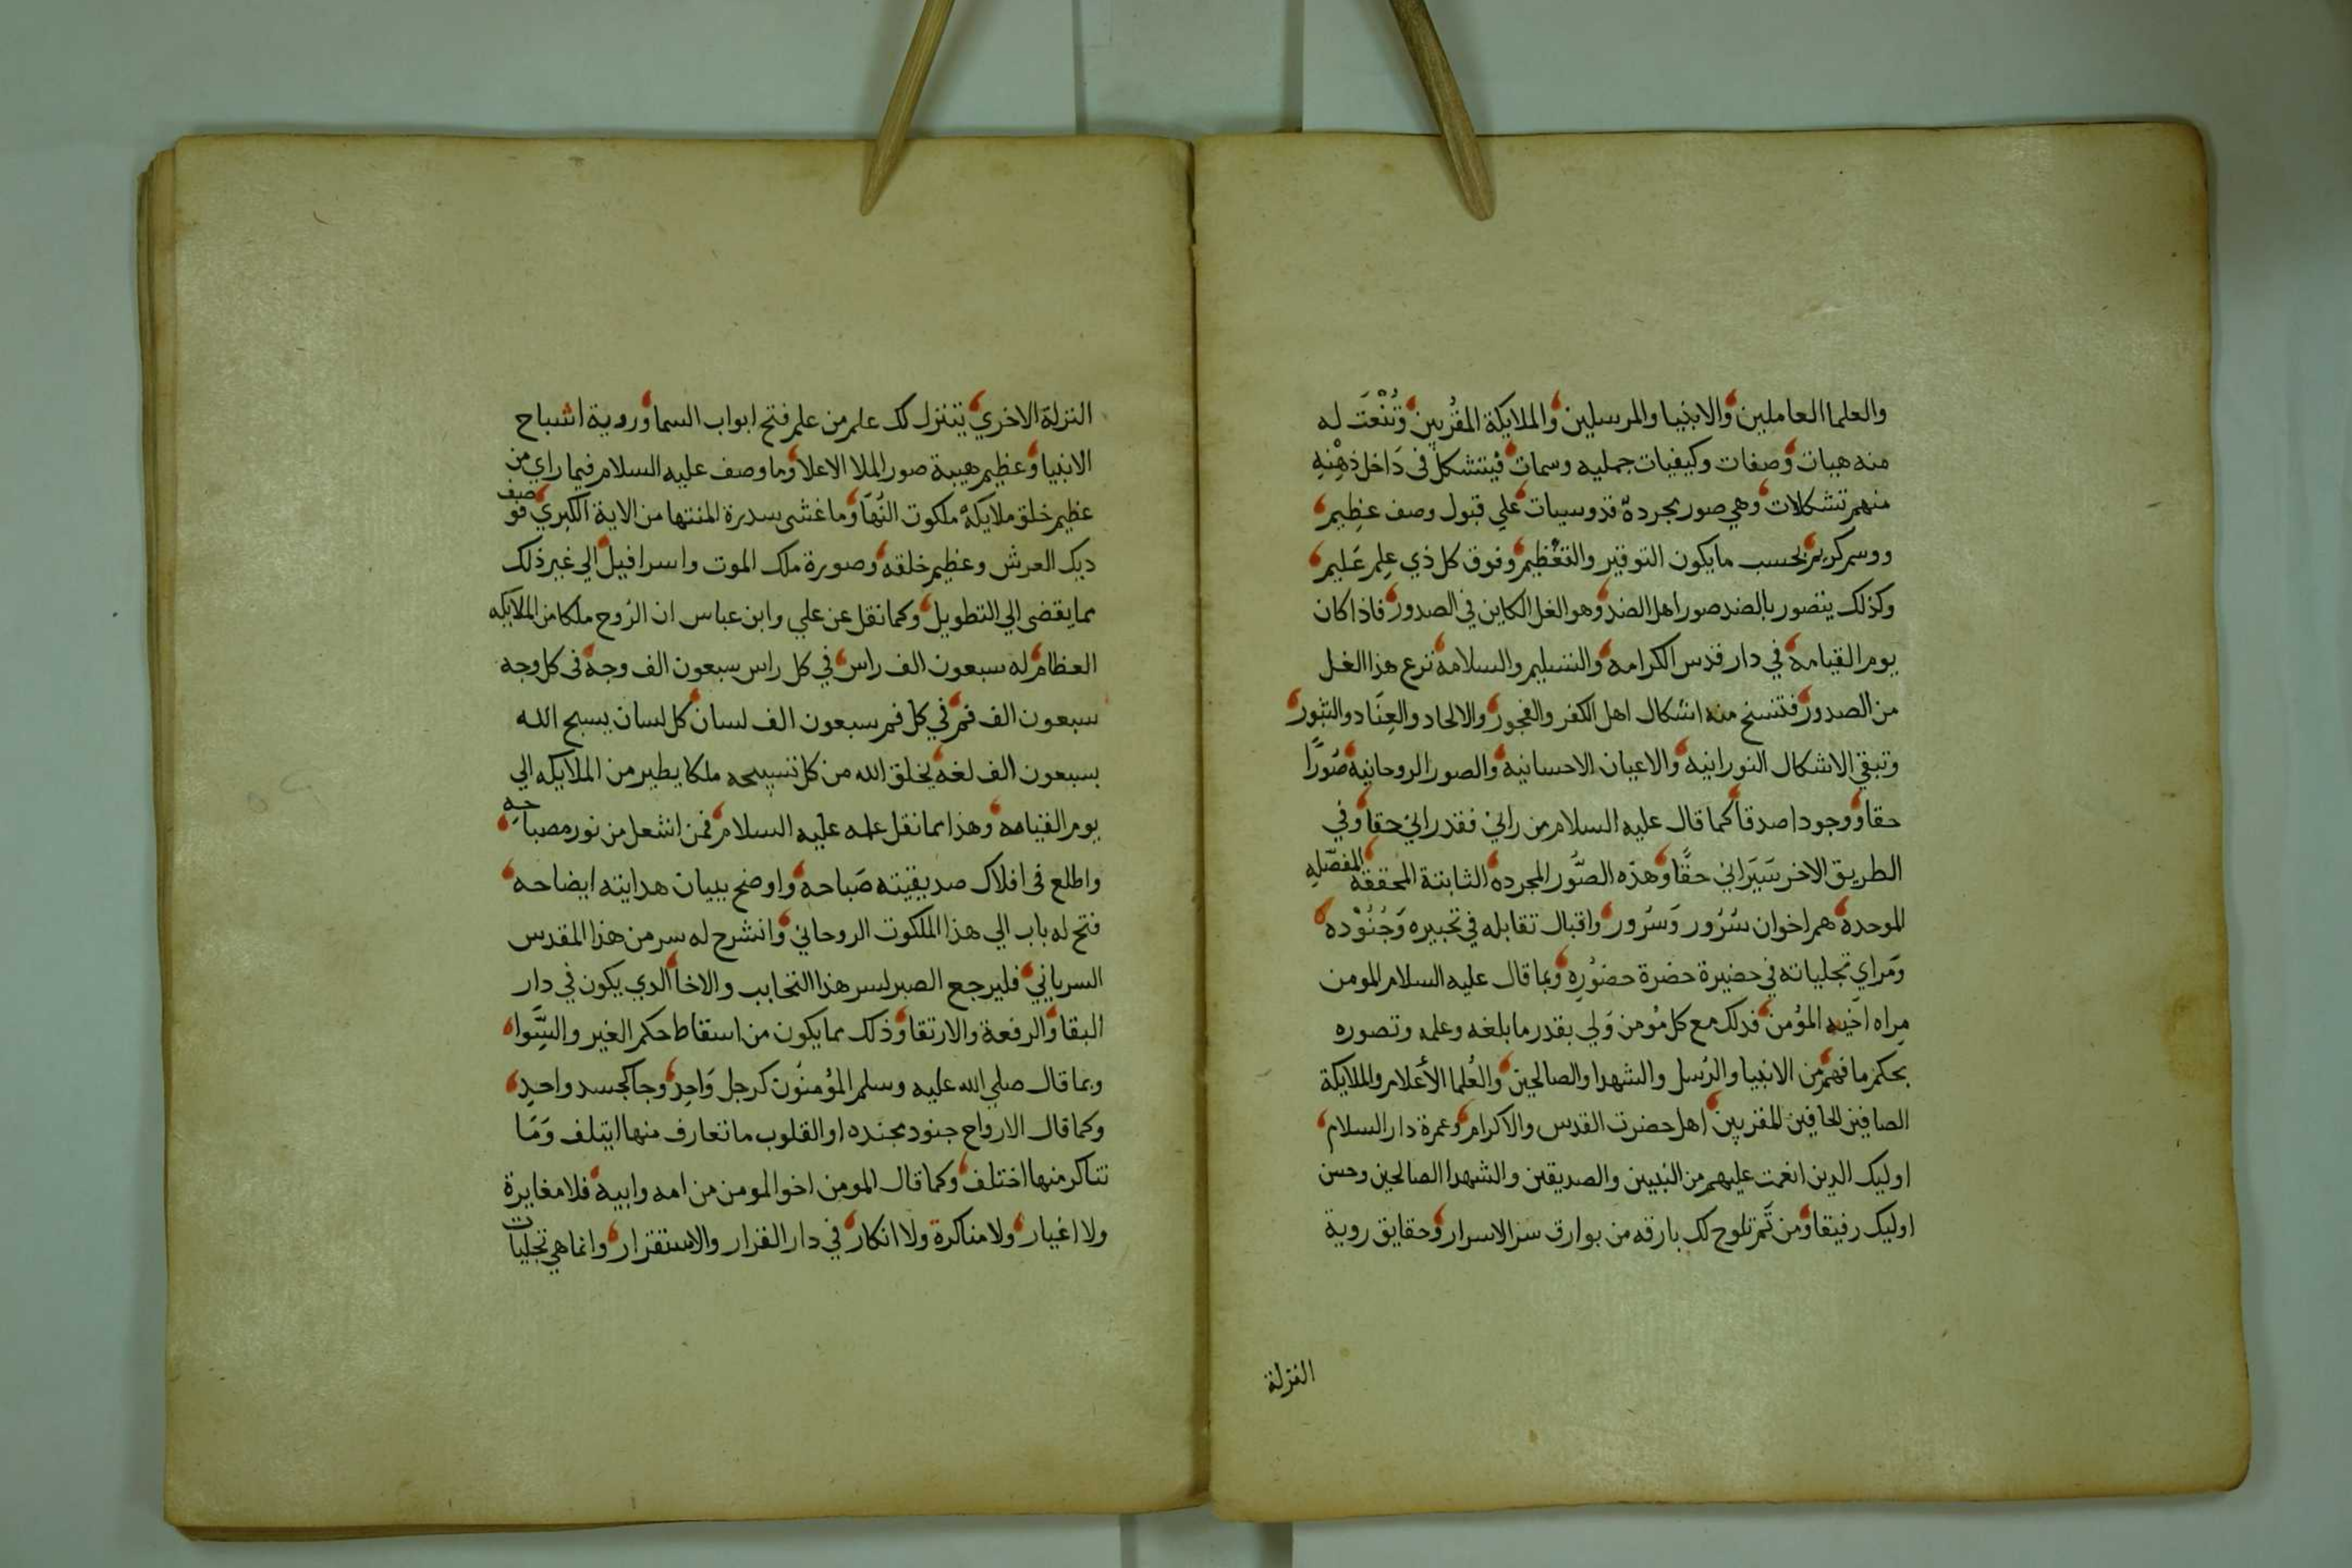 والعلما العاملين والانبيا والمرسلين والملايكة المقربين وتُنْعَت له
منه هيبات وصفات وكيفيات جمليه وسمات فيتشكل في دَاخل ذِهْنِهِ
منهم تشكلات وهي صور مجردة قدوسيات علي قبول وصف عظيم
ووسم كريم بحسب ما يكون التوقير والتعْظيم وفوق كل ذي علم عَليم
وكذلك يتصور بالضد صور اهل الضد وهو الغل الكاين في الصدور فاذا كان
يوم القيامه في دار قدس الكرامه والتسليم والسلامه نزع هذا الغل
من الصدور فتنسخ منه اشكال اهل الكفر والفجور والالحاد والعِنَاد والثبور
وتبقي الاشكال النورانيه والاعيان الاحسانيه والصور الروحانيه صُورًا
حقا ووجودا صدقا كما قال عليه السلام من راني فقد راني حقا وفي
الطريق الاخر سَيَرَاني حقًّا وهذه الصُّوَر المجرده الثابتة المحققه المفصّله
الموحدة هم اخوان سُرُور وَسُرور واقبال تقابله في تحبيره وَجُنُوْده
وَمراي تجلياته في حضيرة حضرة حضُوره وبما قال عليه السلام المومن
مِراه اخَيه المؤمن فدلك مع كل مُومن وَلي بقدر ما بلغه وعلمه وتصوره
بحكم ما فهم من الانبيا والرُسل والشهدا والصالحين والعُلما الأعلام والملايكة
الصافين الحافين المقربين اهل حضرت القدس والاكرام وعمرة دار السلام
اوليك الدين انعمت عليهم من النبيين والصديقين والشهدا الصالحين وحسن
اوليك رفيقا ومن ثَمّ تلوح لك بارقه من بوارق سر الاسرار وحقايق روية
النزلة
النزلة الاخري يتنزل لك علم من علم فتح ابواب السما وروية اشباح
الانبيا وعظيم هيبة صور الملا الاعلا وما وصف عليه السلام فيما راي من
عظيم خلق ملايكة ملكوت النُهَا وما غشى سدرة المنتها من الاية الكبري فوصف
ديك العرش وعظيم خلقه وصورة ملك الموت واسرافيل الي غير ذلك
مما يقضى الي التطويل وكما نقل عن علي وابن عباس ان الرُوح ملكا من الملايكه
العظام له سبعون الف راس في كل راس سبعون الف وجه في كل وجه
سبعون الف فم في كل فم سبعون الف لسان كل لسان يسبح الله
بسبعون الف لغه يخلق الله من كل تسبيحه ملكا يطير من الملايكه الي
يوم القيامه وهذا مما نقل عليه السلام فمن اشعل من نور مصباحه
واطلع في افلاك صديقيته صَباحه واوضح ببيان هدايته ايضاحه
فتح له باب الي هذا الملكوت الروحاني وانشرح له سر من هذا المقدس
السرياني فليرجع الصبر لسر هذا التحابب والاخا الدي يكون في دار
البقا والرفعة والارتقا وذلك مما يكون من اسقاط حكم الغير والسِّوا
وبما قال صلي الله عليه وسلم المؤمنُون كرجل وَاحِد وجا كجسد واحدِ
وكما قال الارواح جنود مجنده او القلوب ما تعارف منها ايتلف وَمَا
تناكر منها اختلف وكما قال المومن اخو المومن من امه وابيه فلا مغايرة
ولا اغيار ولا مناكرة ولا انكار في دار القرار والاستقرار وانما هي تجليات